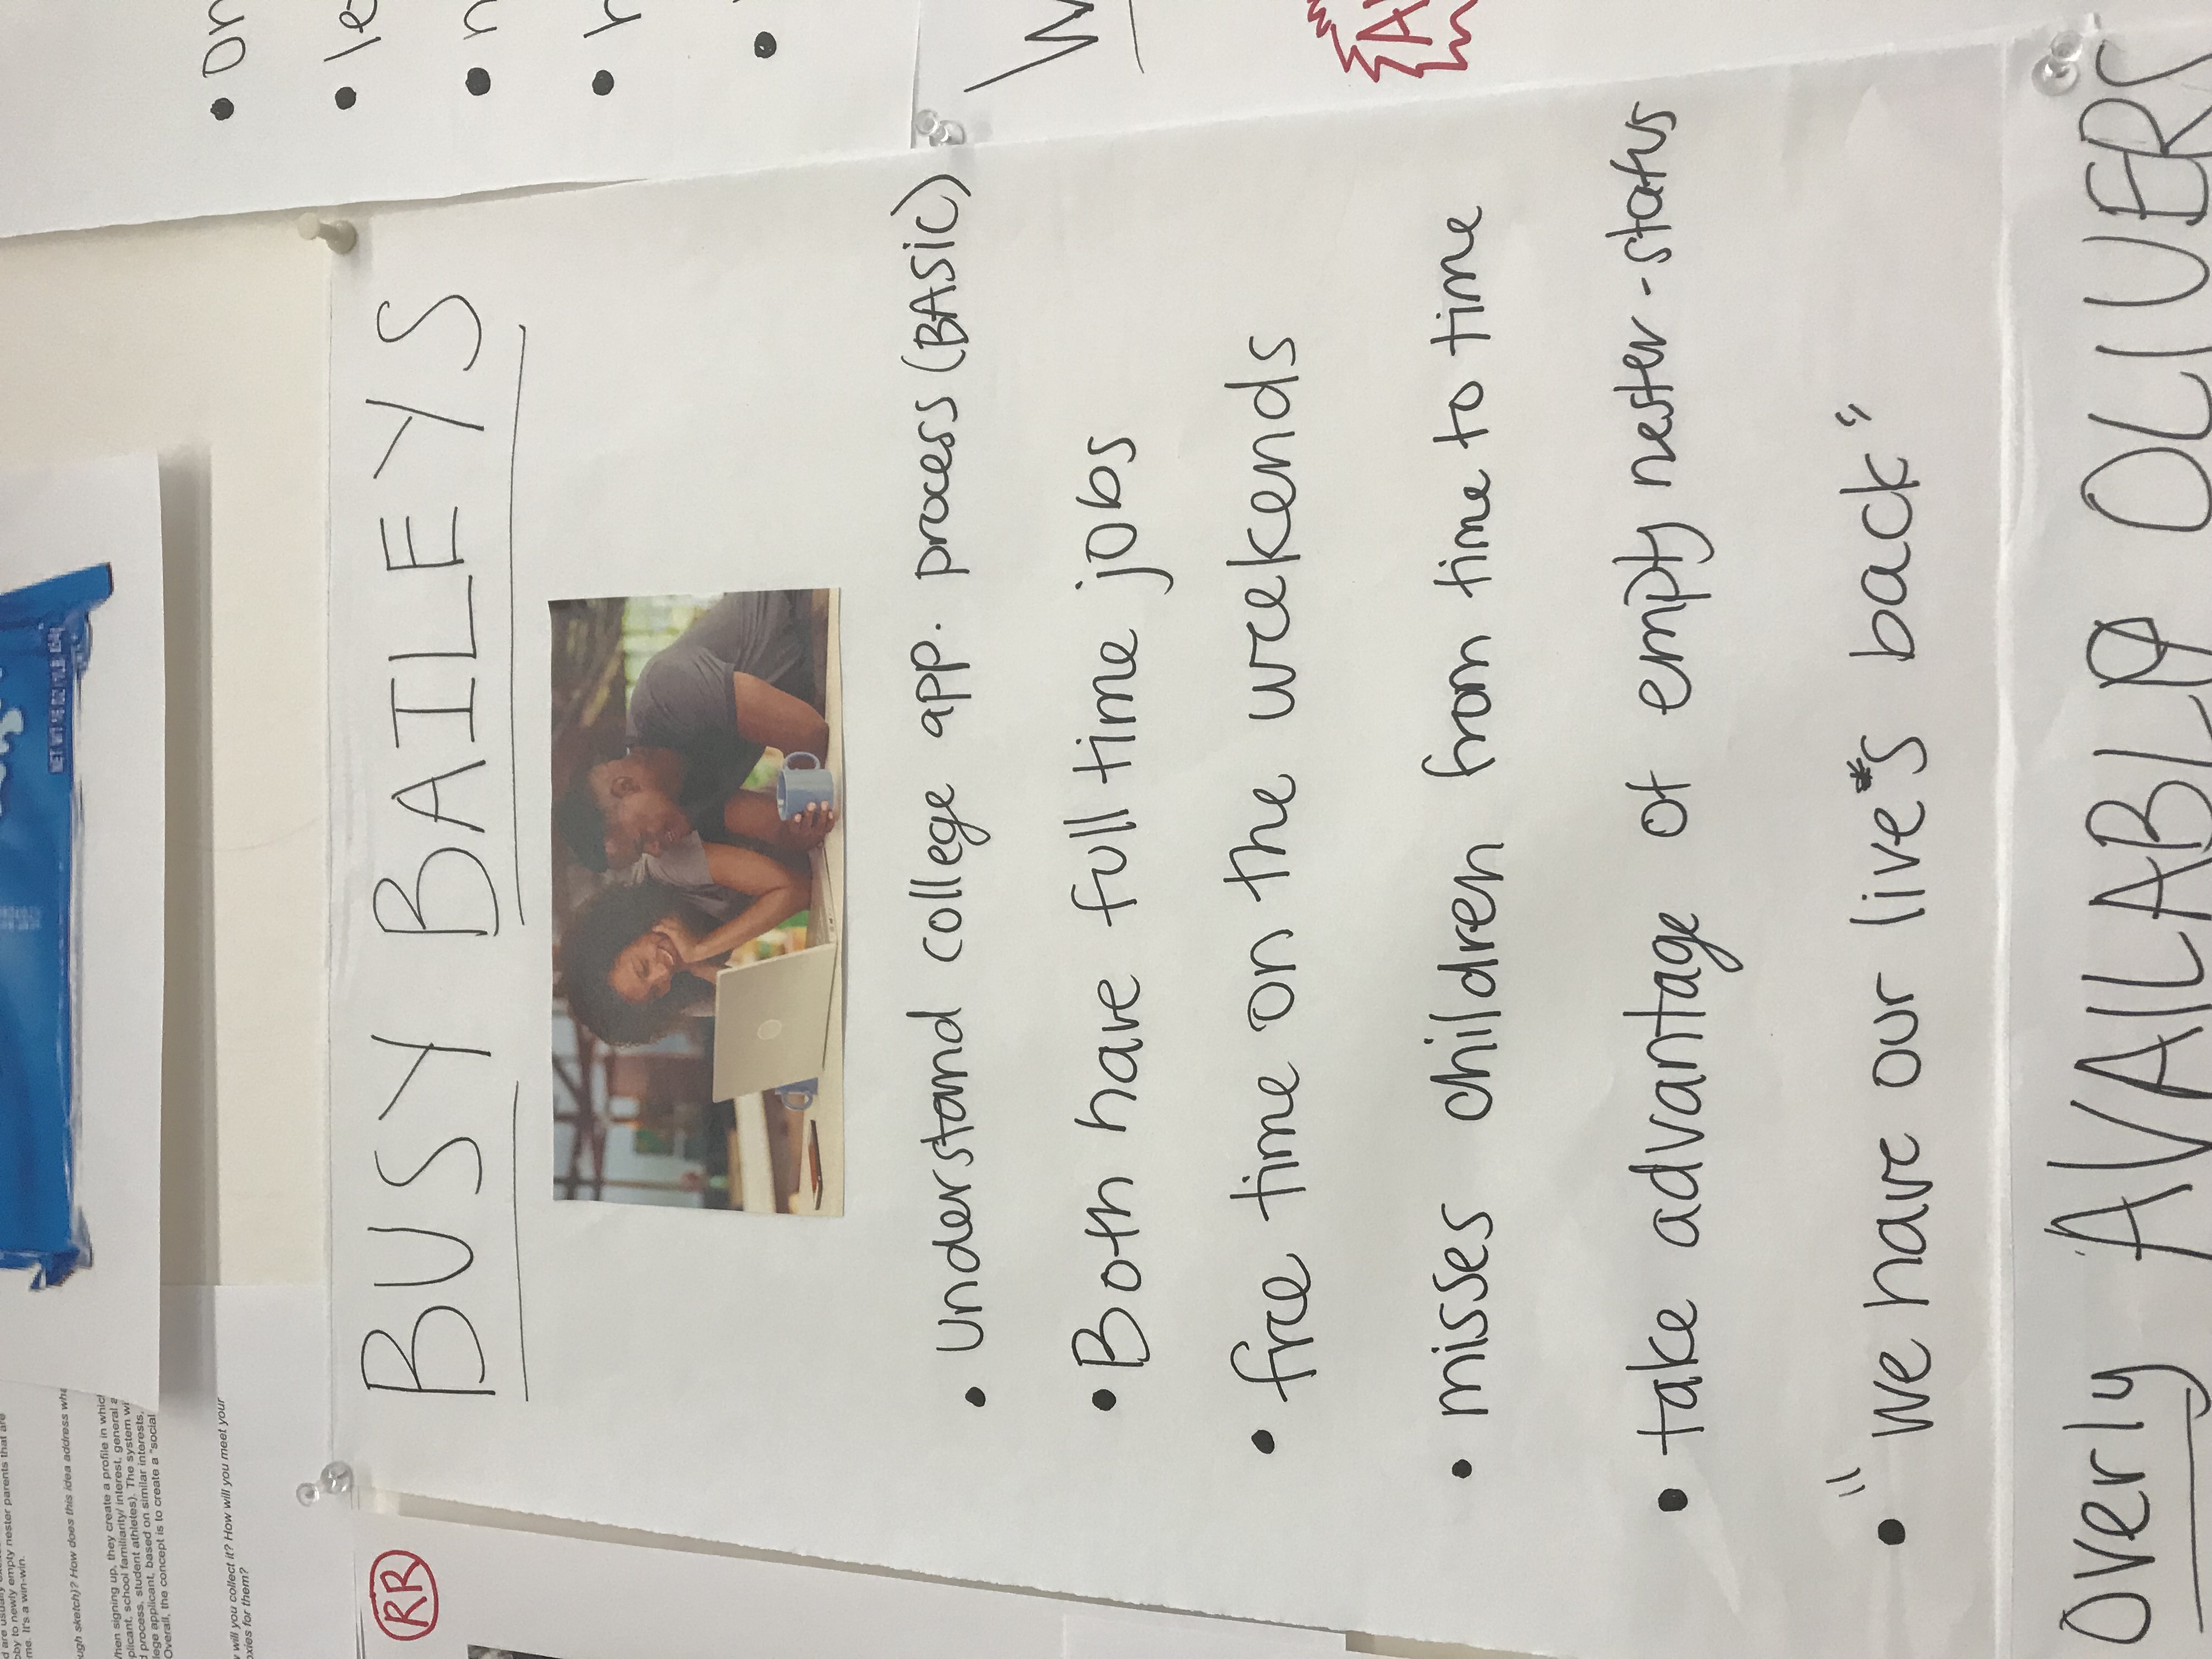 d are usually
bby to newly empty nester parents that are
me. It's a win-win.
ugh sketch)? How does this idea address wha
When signing up, they create a profile in which
plicant, school familiarity/ interest, general a
d process, student athletes). The system wi
lege applicant, based on similar interests,
Overall, the concept is to create a "social
w will you collect it? How will you meet your
oxies for them?
NET WT 16 OZ (1LB) 454g
RR
BUSY BAILEYS
• understand college app. process (BASiC)
• Both have full time jobs
• free time on the weekends
• misses children from time to time
• take advantage of empty nester-status
• "we have our live's back"
Overly AVAILABLE OLIVERS
• on
• le
• n
• h
W